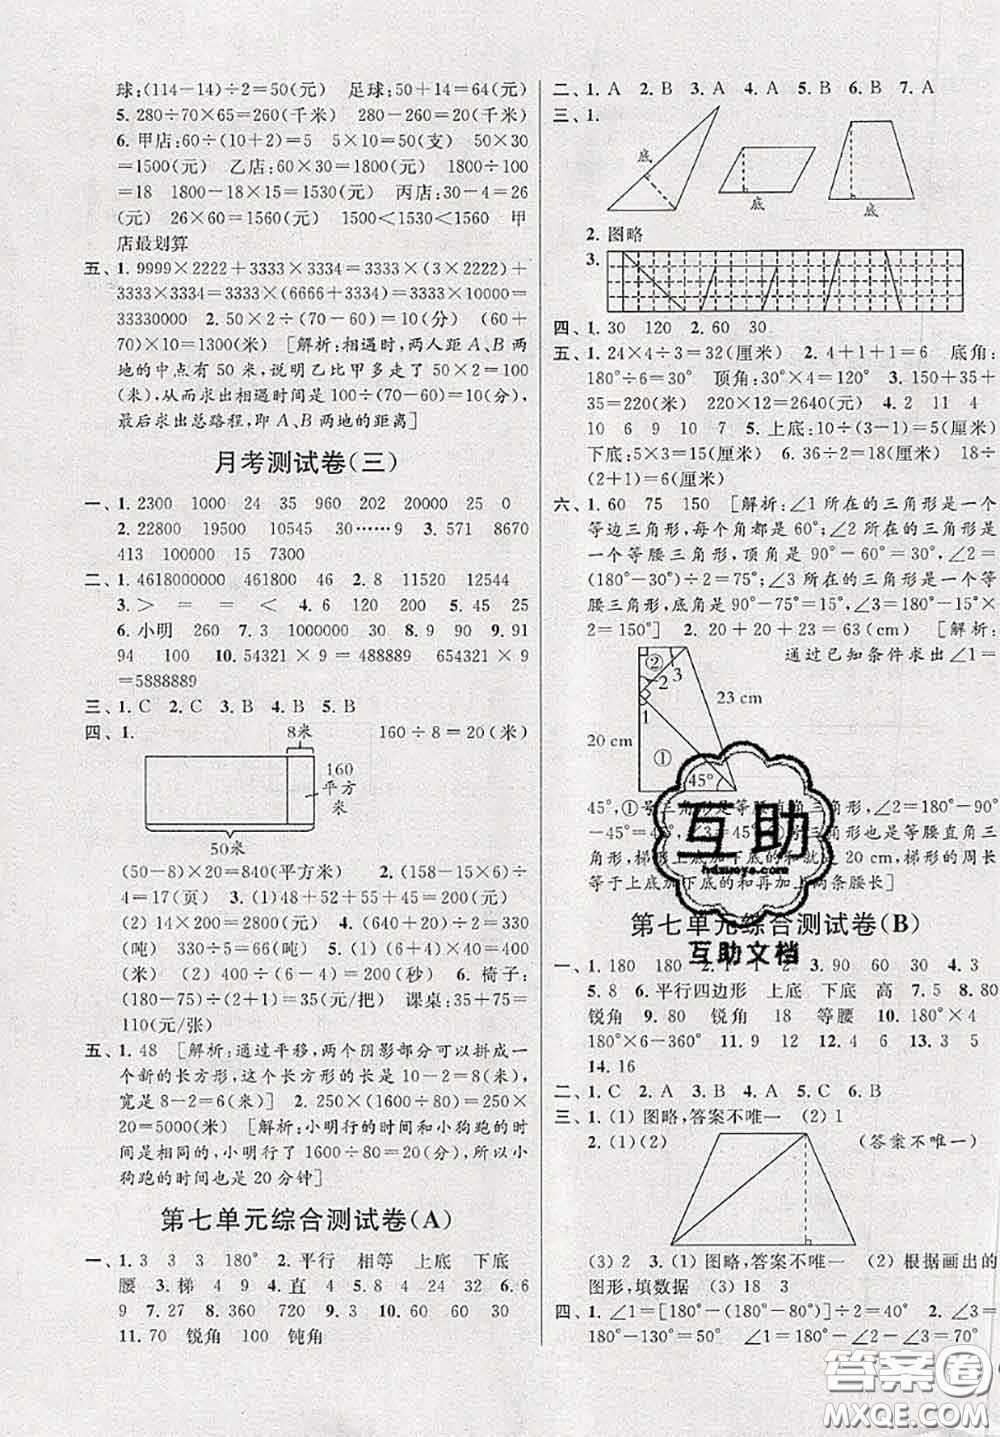 球:(114−14)÷2=50(元)　足球:50+14=64(元)
5. 280÷70×65=260(千米)　280−260=20(千米)
6. 甲店:60÷(10+2)=5　5×10=50(支)　50×30
=1500(元)　乙店:60×30=1800(元)　1800÷100
=18　1800−18×15=1530(元)　丙店:30−4=26
(元)　26×60=1560(元)　1500<1530<1560　甲
店最划算
五、1. 9999×2222+3333×3334=3333×(3×2222)+
3333×3334=3333×(6666+3334)=3333×10000=
33330000　2. 50×2÷(70−60)=10(分)　(60+
70)×10=1300(米)　[解析:相遇时,两人距A、B两
地的中点有 50 米,说明乙比甲多走了 50×2=100
(米),从而求出相遇时间是 100÷(70−60)=10(分),
最后求出总路程,即A、B两地的距离]
月考测试卷(三)
一、1. 2300　1000　24　35　960　202　20000　25　0
2. 22800　19500　10545　30……9　3. 571　8670
413　100000　15　7300
二、1. 4618000000　461800　46　2. 8　11520　12544
3. >　=　=　<　4. 6　10　20　5. 45　25
6. 小明　260　7. 3　1000000　30　8. 9　90　9. 91
94　100　10. 54321×9=488889　654321×9
=5888889
三、1. C　2. C　3. B　4. B　5. B
四、1.
8米
160÷8=20(米)
160
平方
米
50米
(50−8)×20=840(平方米)　2. (158−15×6)÷
4=17(页)　3. (1)48+52+55+45=200(元)
(2) 14×200=2800(元)　4. (640+20)÷2=330
(吨)　330÷5=66(吨)　5. (1)(6+4)×40=400
(米)　(2) 400×2÷(6−2)=200(秒)　6. 椅子:
(180−75)÷(2+1)=35(元/把)　课桌:35+75=
110(元/张)
五、1. 48　[解析:通过平移,两个阴影部分可以拼成一
个新的长方形,这个长方形的长是 10−2=8(米),
宽是 8−2=6(米)]　2. 250×(1600÷80)=250×
20=5000(米)　[解析:小明行的时间和小狗跑的时间
是相同的,小明行了 1600÷80=20(分),所以小
狗跑的时间也是 20 分钟]
第七单元综合测试卷(A)
一、1. 3　3　3　180°　2. 平行　相等　上底　下底
腰　3. 梯　4　9　4. 直　4　5. 8　4　24　32　6. 6
9　7. 27　8. 360　720　9. 3　10. 60　60　30
11. 70　锐角　100　钝角
二、1. A　2. B　3. A　4. A　5. B　6. B　7. A
三、1.
底
底
底
2. 图略
3.
四、1. 30　120　2. 60　30
五、1. 24×4÷3=32(厘米)　2. 4+1+1=6　底角:
180°÷6=30°　顶角:30°×4=120°　3. 150+35+
35=220(米)　220×12=2640(元)　4. 2　11　4
10　6　9　10　5. 上底:10÷(3−1)=5(厘米)
下底:5×3=15(厘米)　6. 36÷2=18(厘米)　18÷
(2+1)=6(厘米)
六、1. 60　75　150　[解析:∠1 所在的三角形是一个
等边三角形,每个角都是 60°;∠2 所在的三角形是
一个等腰三角形,顶角是 90°−60°=30°,∠2=
(180°−30°)÷2=75°;∠3 所在的三角形是一个等
腰三角形,底角是 90°−75°=15°,∠3=180°−15°×
2=150°]　2. 20+20+23=63(cm)　[解析:
通过已知条件求出∠1=
②
2
3
1
23 cm
20 cm
①
45°
45°,①号三角形是等腰直角三角形,∠2=180°−90°
−45°=45°,∠3=45°,②号三角形也是等腰直角三
角形,梯形上底加下底的和就是 20 cm,梯形的周长
等于上底加下底的和再加上两条腰长]
第七单元综合测试卷(B)
一、1. 180　180　2. 1　1　2　3. 90　60　30　4. 3
5. 8　6. 平行四边形　上底　下底　高　7. 5　8. 80
锐角　9. 80　锐角　18　等腰　10. 180°×4
180°×6−360°　11. 9　12　12. 4　6　13. 3　5
14. 16
二、1. C　2. A　3. B　4. A　5. C　6. B
三、1. (1) 图略,答案不唯一　(2) 1
2. (1)(2)
(答案不唯一)
(3) 2　3. (1) 图略,答案不唯一　(2) 根据画出的
图形,填数据　(3) 18　3
四、1. ∠1=[180°−(180°−80°)]÷2=40°　2. ∠3=
180°−130°=50°　∠1=180°−∠2−∠3=70°
互助
hdzuoye.com
互助文档
答案圈
MXQE.COM